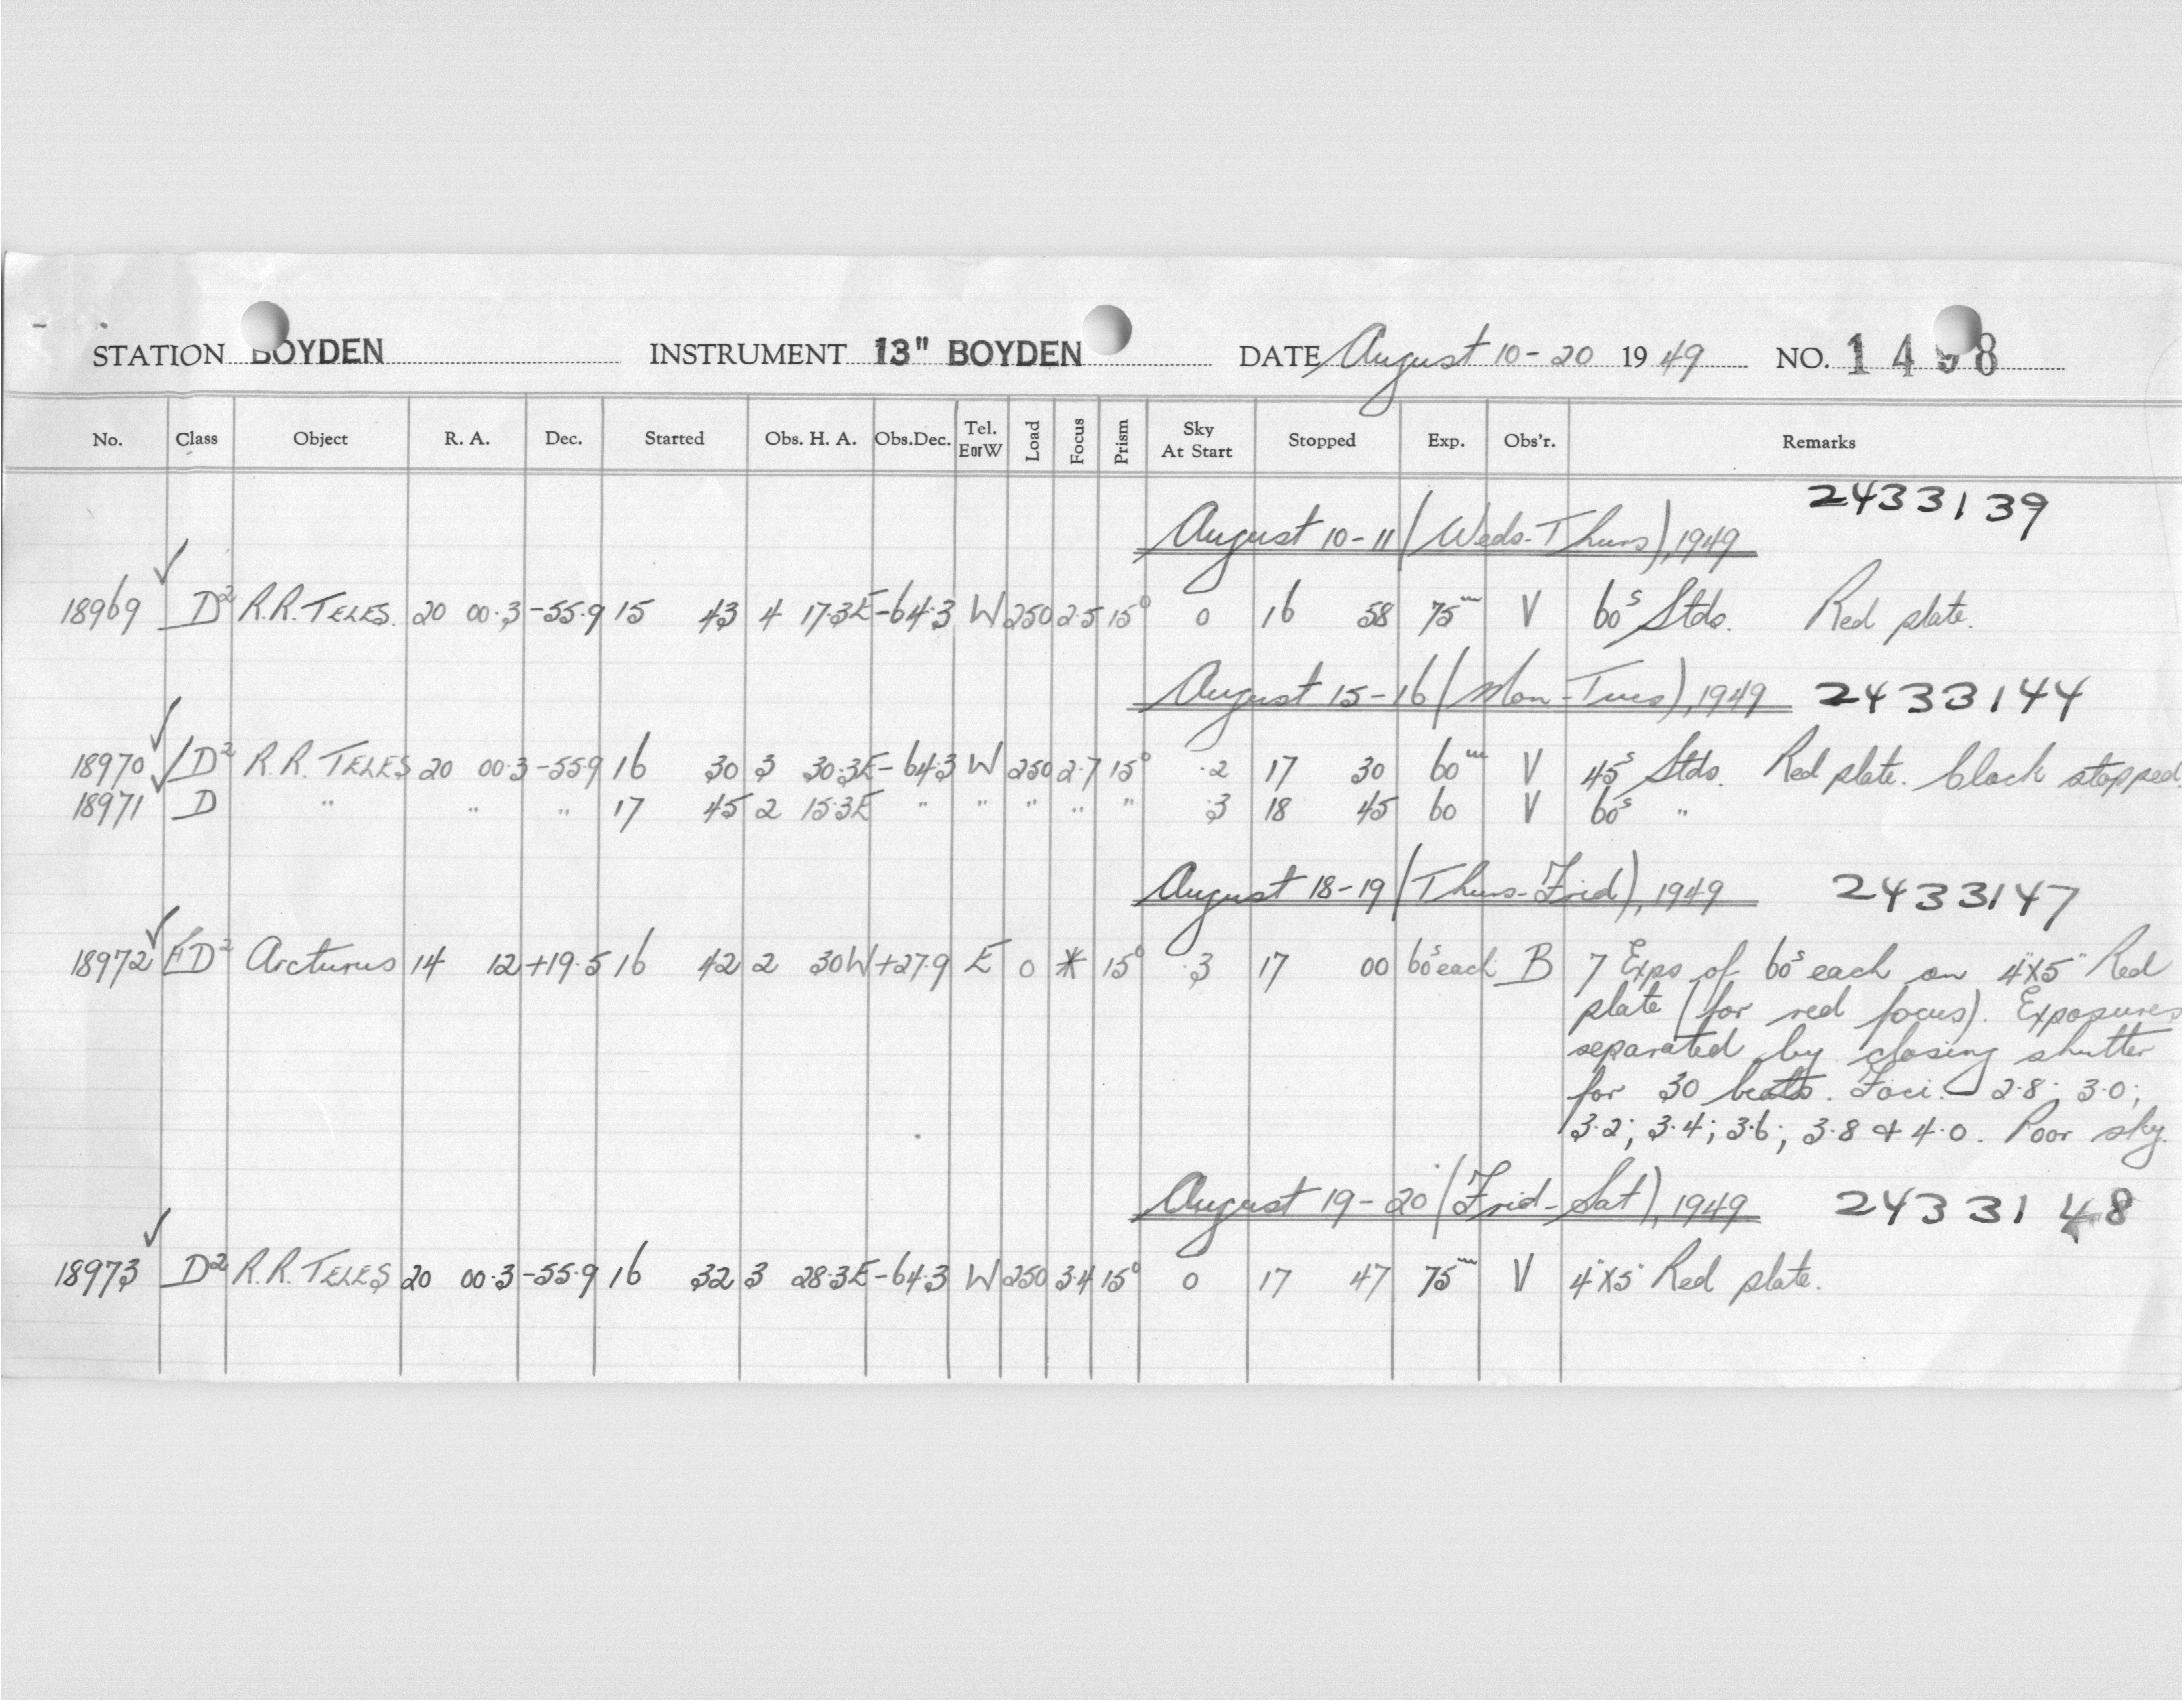 STATION BOYDEN INSTRUMENT 13" BOYDEN DATE August 10-20 1949 NO. 1498
No. Class Object R. A. Dec. Started Obs. H. A. Obs.Dec. Tel. E or W Load Focus Prism Sky At Start Stopped Exp. Obs'r. Remarks
2433139
August 10-11 (Weds-Thurs), 1949
18969 D² R.R. TELES. 20 00.3 -55.9 15 43 4 17.3E -64.3 W 250 2.5 15° 0 16 58 75ᵐ V 60ˢ Stds. Red plate.
August 15-16 (Mon-Tues), 1949 2433144
18970 D² R.R. TELES 20 00.3 -55.9 16 30 3 30.3E -64.3 W 250 2.7 15° .2 17 30 60ᵐ V 45ˢ Stds. Red plate. Clock stopped.
18971 D " " " 17 45 2 15.3E " " " " " .3 18 45 60 V 60ˢ "
August 18-19 (Thurs-Frid), 1949 2433147
18972 FD² Arcturus 14 12 +19.5 16 42 2 30W +27.9 E 0 * 15° .3 17 00 60ˢ each B 7 Exps of 60ˢ each on 4"X5" Red
plate (for red focus). Exposures
separated by closing shutter
for 30 beats. Foci:- 2.8; 3.0;
3.2; 3.4; 3.6; 3.8 & 4.0. Poor sky.
August 19-20 (Frid-Sat), 1949 2433148
18973 D² R.R. TELES 20 00.3 -55.9 16 32 3 28.3E -64.3 W 250 3.4 15° 0 17 47 75ᵐ V 4"X5" Red plate.